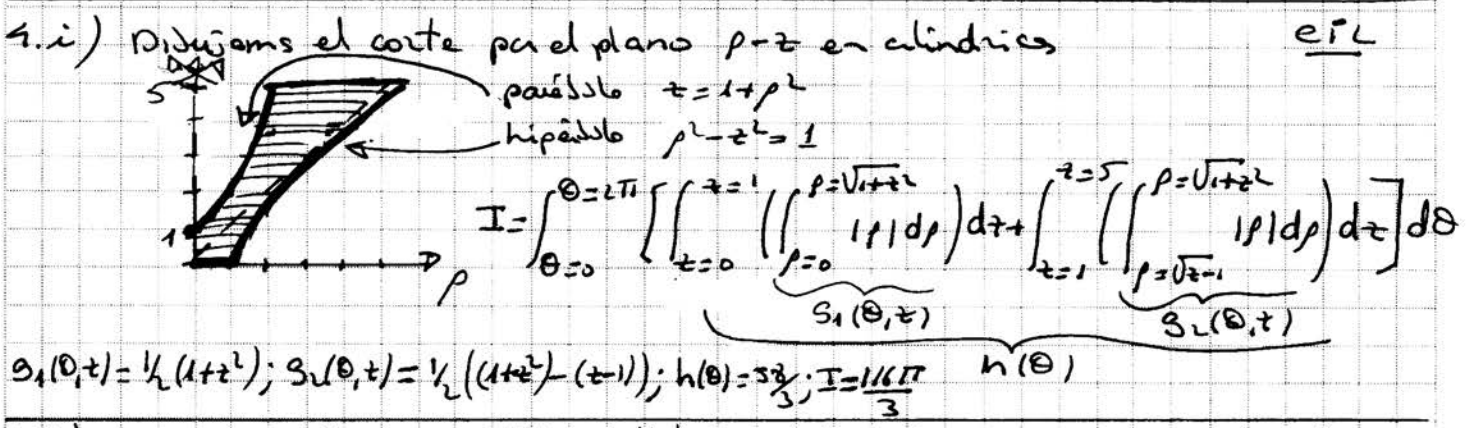 4.i) Dibujams el corte por el plano ρ-z en cilíndricas
eTL
5
parábola z = 1+ρ²
hipérbola ρ²-z² = 1
1
ρ
I = ∫_{θ=0}^{θ=2π} [ ∫_{z=0}^{z=1} ( ∫_{ρ=0}^{ρ=√(1+z²)} |ρ|dρ ) dz + ∫_{z=1}^{z=5} ( ∫_{ρ=√(z-1)}^{ρ=√(1+z²)} |ρ|dρ ) dz ] dθ
g₁(θ,z)
g₂(θ,z)
h(θ)
g₁(θ,z) = ½(1+z²); g₂(θ,z) = ½((1+z²)-(z-1)); h(θ) = 58/3; I = 116π/3